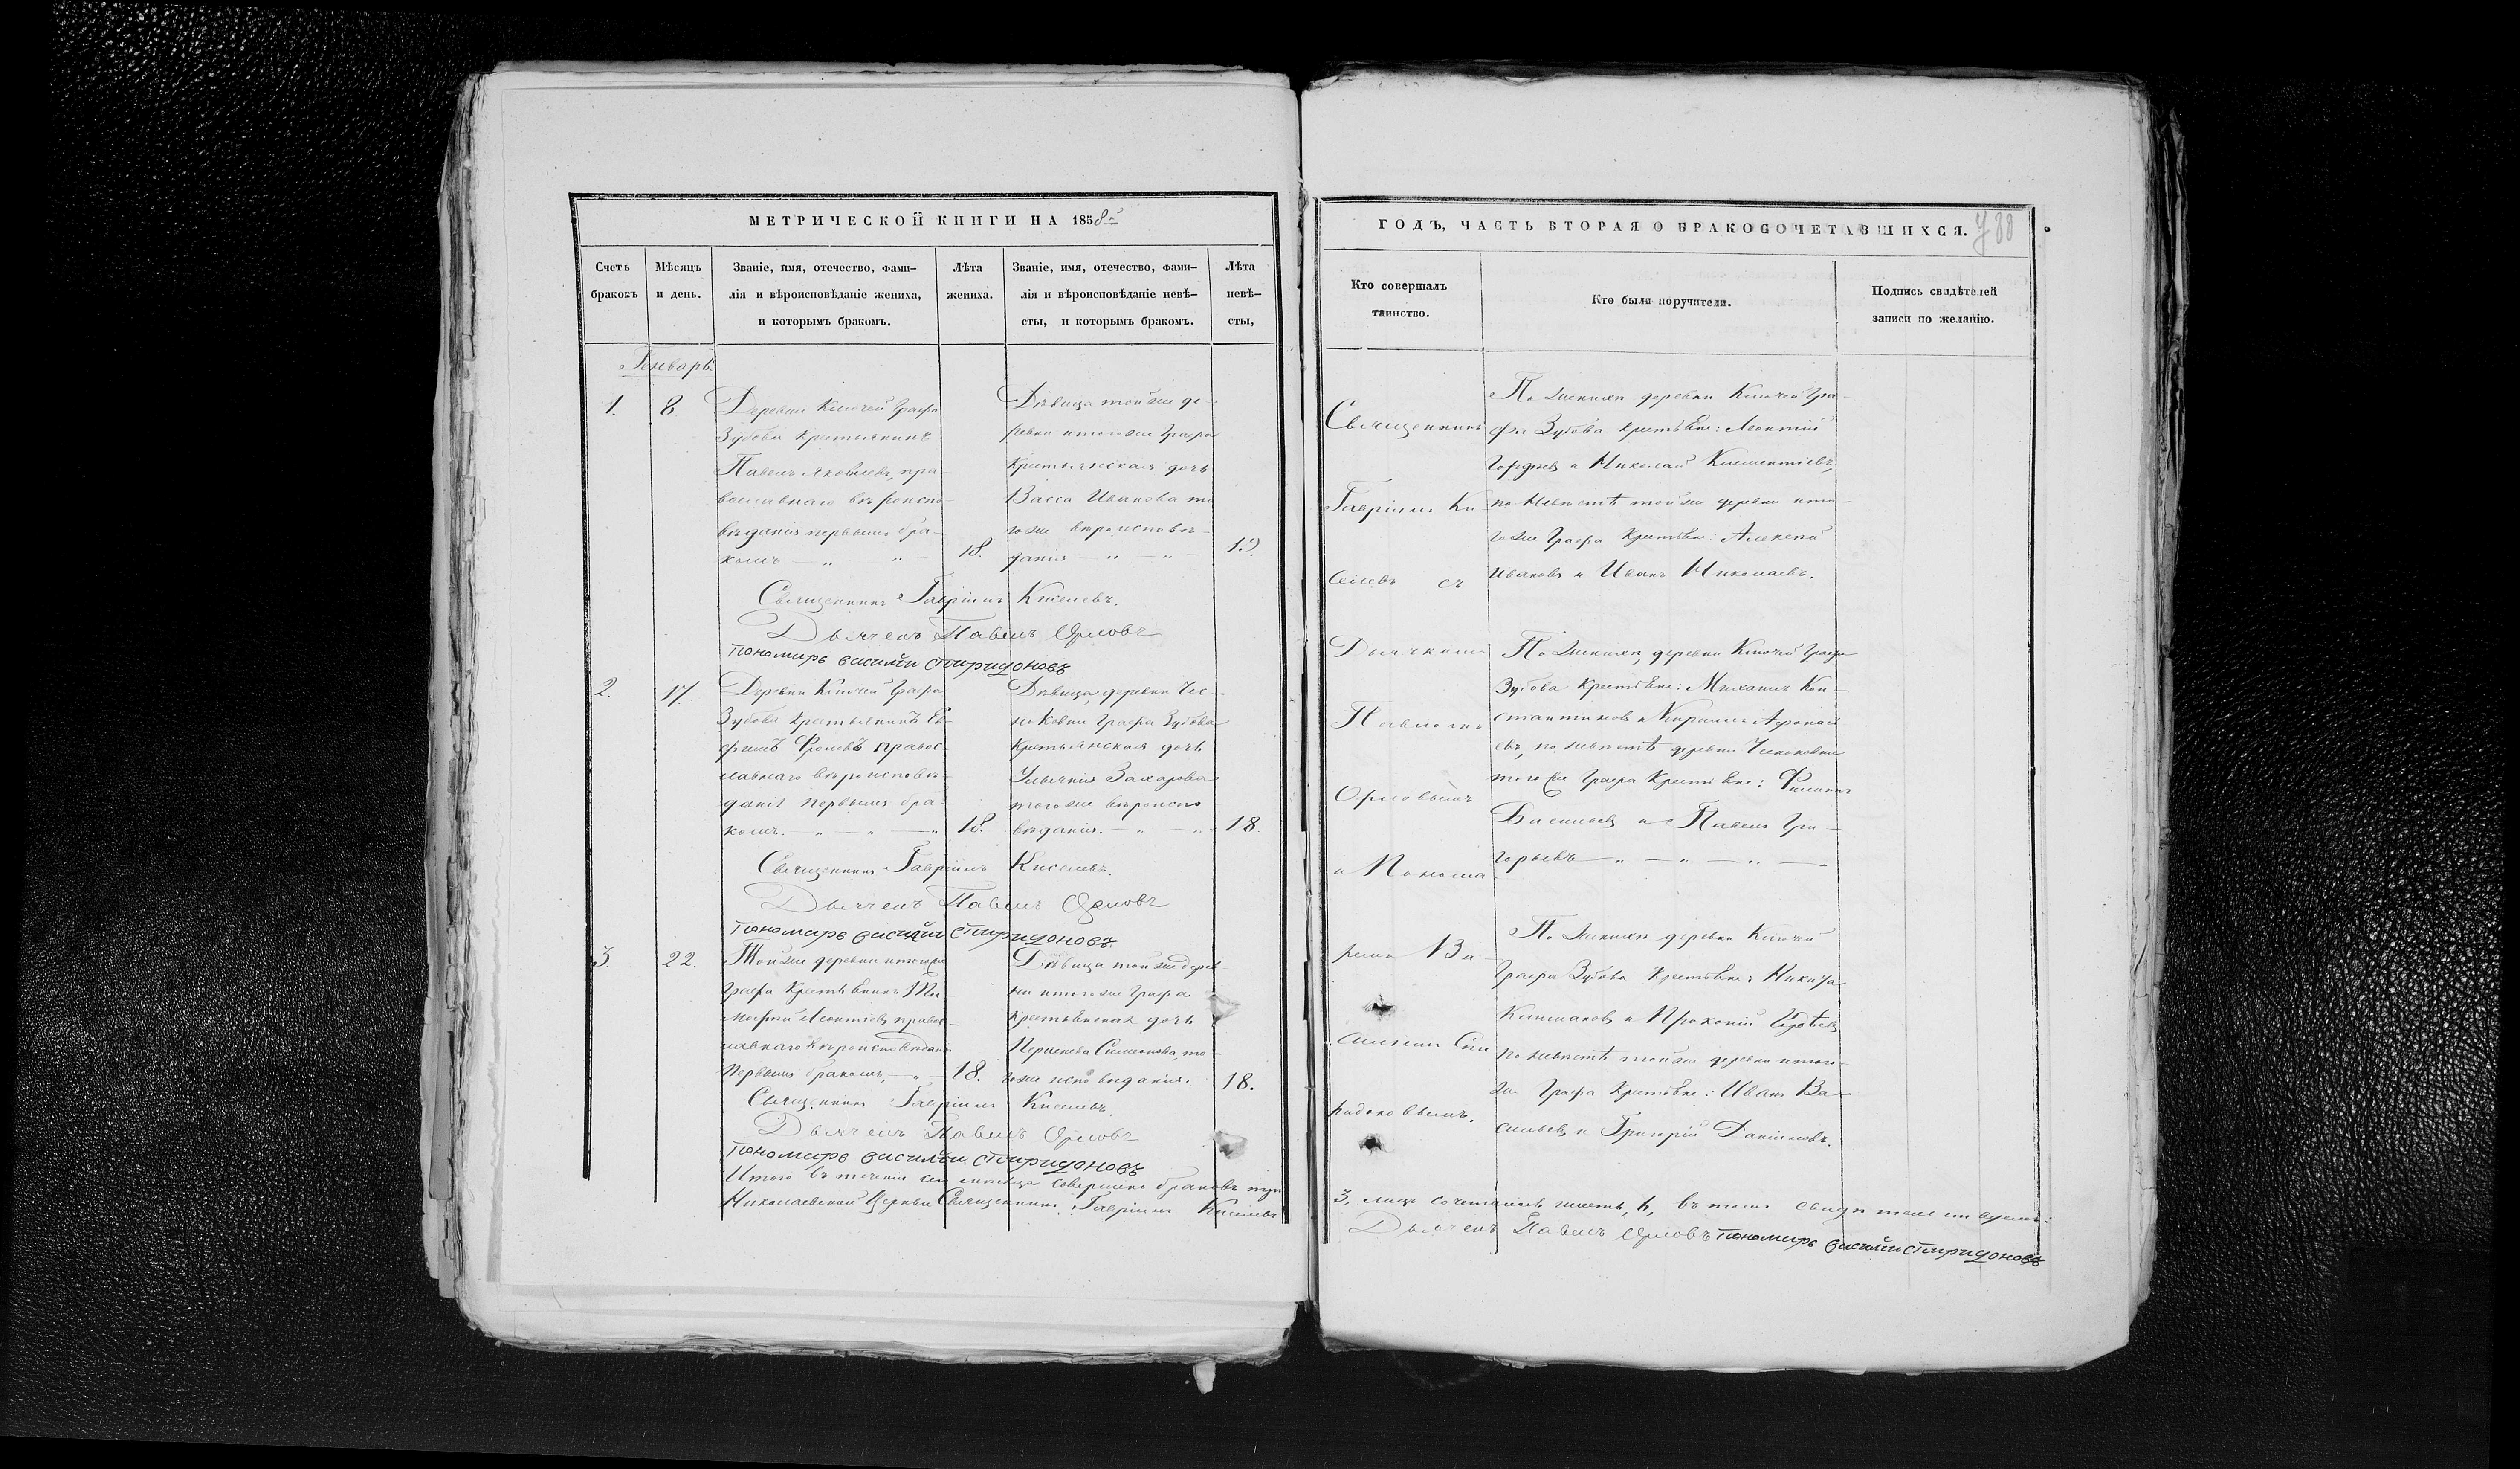 МЕТРИЧЕСКОЙ КНИГИ НА 1858й
Счетъ браковъ
Мѣсяцъ и день.
Званіе, имя, отечество, фами-
лія и вѣроисповѣданіе жениха,
и которымъ бракомъ.
Лѣта жениха.
Званіе, имя, отечество, фами-
лія и вѣроисповѣданіе невѣ-
сты, и которымъ бракомъ.
Лѣта невѣ-
сты,
Генварь.
1. 8.
Деревни Ключей Графа
Зубова крестьянинъ
Павелъ Яковлевъ, пра-
вославнаго вѣроиспо-
вѣданія первымъ бра-
комъ 18.
Дѣвица той же де-
ревни итогоже Графа
Крестьянская дочь
Васса Иванова то
гоже вѣроисповѣ-
данія
Священникъ Гавріилъ Киселевъ.
Дьячекъ Павелъ Орловъ
пономарь василий спиридоновъ
2. 17.
Деревни Ключей Графа
Зубова крестьянинъ Еѳ-
фимъ Фроловъ правос-
лавнаго вѣроисповѣ-
данія первымъ бра-
комъ. 18.
Дѣвица, деревни Чес-
ноковки Графа Зубова
Крестьянская дочь
Захарова
тогоже вѣроиспо
вѣданія. 18.
Священникъ Гавріилъ Киселевъ.
Дьячекъ Павелъ Орловъ
пономарь василий спиридоновъ
3. 22.
Той же деревни итогоже
Графа Крестьянинъ Ти-
мофей Леонтіевъ правос-
лавнаго вѣроисповѣданія
Первымъ бракомъ, 18.
Дѣвица той же дерев-
ни итогоже Графа
крестьянская дочь
Симеонова, то-
гоже исповѣданія. 18.
Священникъ Гавріилъ Киселевъ.
Дьячекъ Павелъ Орловъ
пономарь василий спиридоновъ
Итого въ теченіи сего мѣсяца совершено браковъ три
Николаевской Церкви Священникъ Гавріилъ Киселевъ
ГОДЪ, ЧАСТЬ ВТОРАЯ О БРАКОСОЧЕТАВШИХСЯ.
Кто совершалъ
таинство.
Кто были поручители.
Подпись свидѣтелей
записи по желанію.
Священникъ
Гавріилъ Ки
селевъ съ
Дьячкомъ
Павломъ
Орловымъ
и Понома
ремъ Ва
силіемъ Спи
ридоновымъ.
По женихѣ деревни Ключей Гра-
фа Зубова Леонтій
Гордѣевъ и Николай Климентіевъ,
по невѣстѣ той же деревни ито-
гоже Графа Алексѣй
Ивановъ и Иванъ Николаевъ.
По женихѣ, деревни Ключей Графа
Зубова Михаилъ Кон-
стантиновъ и Кириллъ Афонась
евъ, по невѣстѣ деревни Чесноковки
того же Графа Филиппъ
Васильевъ и Павелъ Гри-
горьевъ
По женихѣ деревни Ключей
Графа Зубова
и Прокопій
по невѣстѣ тойже деревни итого-
же Графа Иванъ Ва-
сильевъ и Григорій Даниловъ.
3, лицъ сочетались шесть, 6, въ томъ
Дьячекъ Павелъ Орловъ пономарь василий спиридоновъ